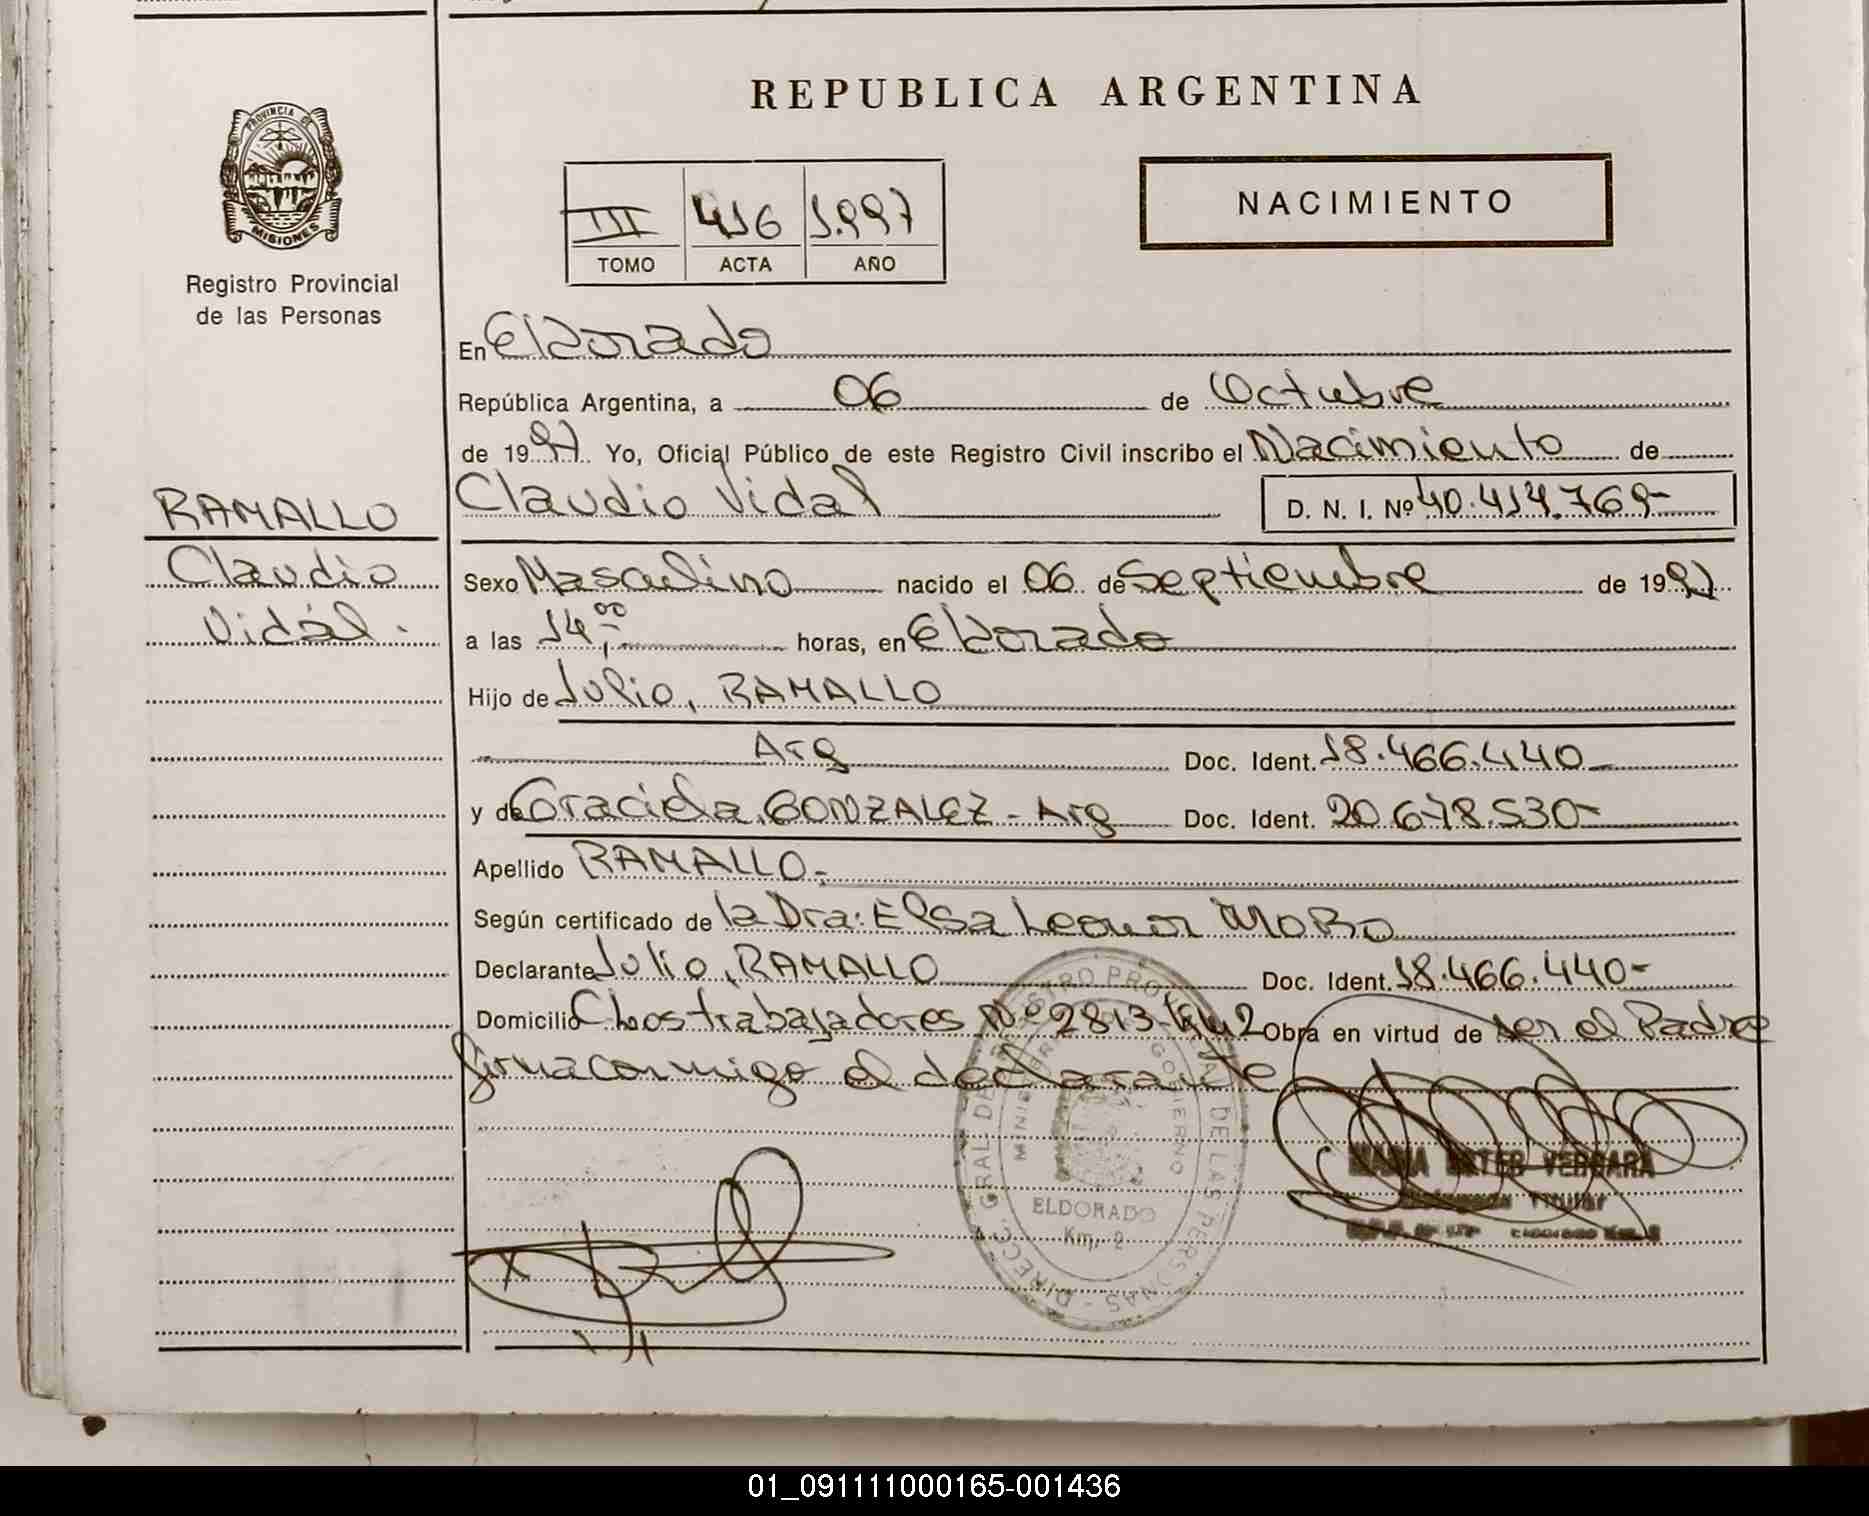 REPUBLICA ARGENTINA
PROVINCIA DE
MISIONES
Registro Provincial
de las Personas
NACIMIENTO
III 416 1.997
TOMO ACTA AÑO
En Eldorado
República Argentina, a 06 de Octubre
de 1997 Yo, Oficial Público de este Registro Civil inscribo el Nacimiento de
RAMALLO
Claudio
Vidál.
Claudio Vidal D. N. I. Nº 40.414.769-
Sexo Masculino nacido el 06 de Septiembre de 1997
a las 14,00 horas, en Eldorado
Hijo de Julio, RAMALLO
Arg Doc. Ident. 18.466.440-
y de Graciela, GONZALEZ - Arg Doc. Ident. 20.678.530-
Apellido RAMALLO.-
Según certificado de la Dra: Elsa Leonor MoRo
Declarante Julio, RAMALLO Doc. Ident. 18.466.440-
Domicilio C/Los trabajadores Nº 2813-km2 Obra en virtud de ser el Padre
firma conmigo el declarante
DIREC. GRAL DE REGISTRO PROVINCIAL DE LAS PERSONAS -
MINISTERIO GOBIERNO
ELDORADO
Km. 2
MARIA ESTER VERGARA
Titular
01_091111000165-001436